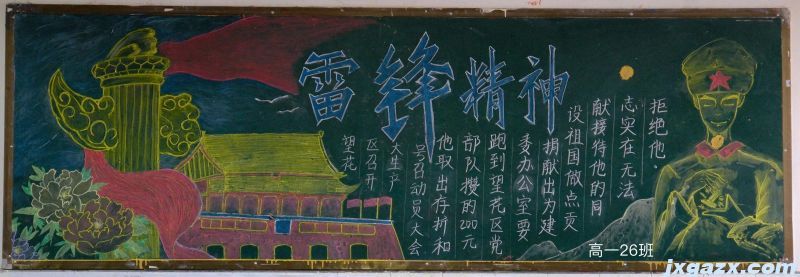 雷锋精神
望花
区召开
大生产
号召动员大会
他取出存折和
部队授的200元
跑到望花区党
委办公室要
捐献出为建
设祖国做点贡
献接待他的同
志实在无法
拒绝他.
高一26班
jxgazx.com